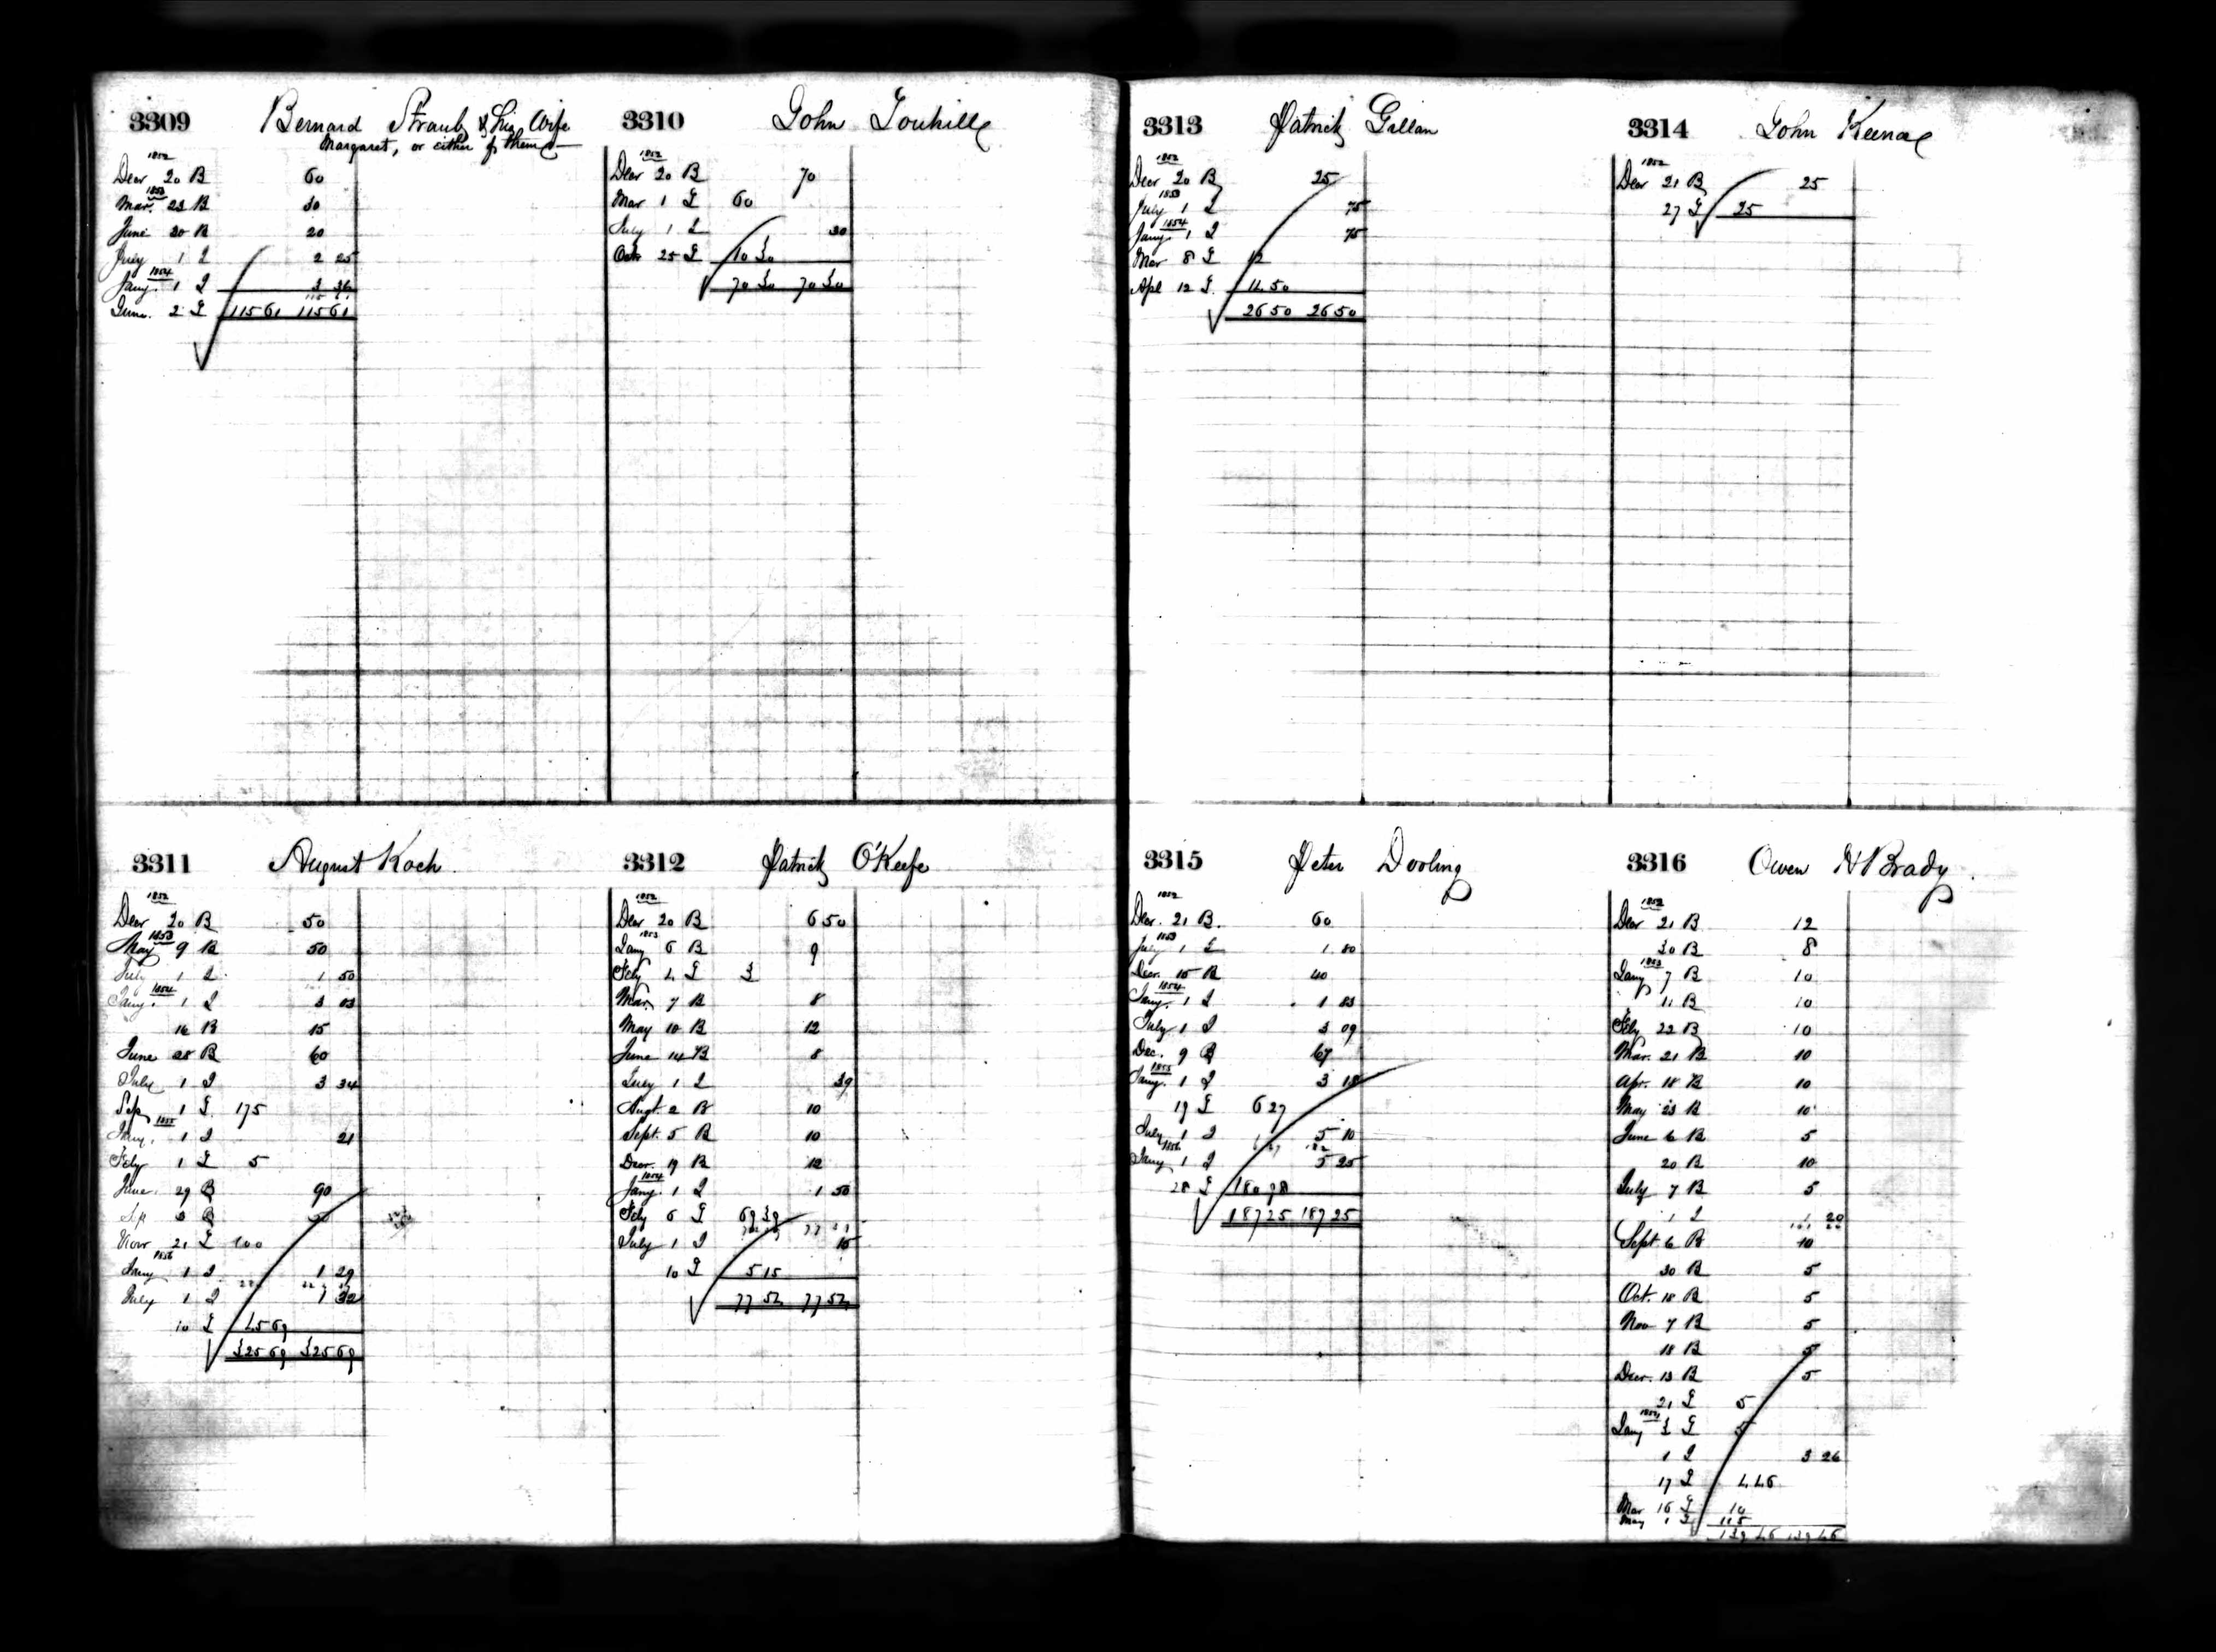 3309 Bernard Straub & his Wife
Margaret, or either of them
1852
Decr 20 B 60
1853
Mar. 23 B 30
June 20 B 20
July 1 I 2 25
1854
Jany. 1 I 3 36
115 61
June 2 L 115 61 115 61
3310 John Touhill
1852
Decr 20 B 70
Mar 1 L 60
July 1 I 30
Octr 25 L 10 30
70 30 70 30
3311 August Koch
1852
Decr 20 B 50
1853
May 9 B 50
July 1 I 1 50
1854
Jany. 1 I 3 03
16 B 15
June 28 B 60
July 1 I 3 34
Sep 1 L 175
1855
Jany. 1 I 21
Feby 1 L 5
June 29 B 90
Sep 3 B 50
Novr 21 L 100
1856
Jany 1 I 1 29
July 1 I 1 32
10 L 45 69
325 69 325 69
3312 Patrick O'Keefe
1852
Decr 20 B 6 50
1853
Jany 6 B 9
Feby 4 L 3
Mar 7 B 8
May 10 B 12
June 14 B 8
July 1 I 39
Augt 2 B 10
Sept. 5 B 10
Decr. 19 B 12
1854
Jany. 1 I 1 50
Feby 6 L 69 39
July 1 I 15
10 L 5 15
77 54 77 54
3313 Patrick Gillan
1852
Decr 20 B 25
1853
July 1 I 75
1854
Jany. 1 I 75
Mar 8 L 12
Apl 12 L. 14 50
26 50 26 50
3314 John Keenae
1852
Decr 21 B 25
27 L 25
3315 Peter Dooling
1852
Decr. 21 B. 60
1853
July 1 I 1 80
Decr. 15 B 40
1854
Jany. 1 I 1 83
July 1 I 3 09
Dec. 9 B 67
1855
Jany. 1 I 3 18
19 L 6 27
July 1 I 5 10
1856
Jany 1 I 5 25
28 L 180 98
187 25 187 25
3316 Owen H Brady.
1852
Decr 21 B 12
30 B 8
1853
Jany 7 B 10
11 B 10
Feby 22 B 10
Mar. 21 B 10
Apr. 18 B 10
May 23 B 10
June 6 B 5
20 B 10
July 7 B 5
1 I 1 20
Sept 6 B 10
30 B 5
Oct. 18 B 5
Nov 7 B 5
18 B 5
Decr. 13 B 5
21 L 5
1854
Jany 3 L 5
1 I 3 26
17 L 4 46
Mar 16 L 10
May 1 L 115
139 46 139 46